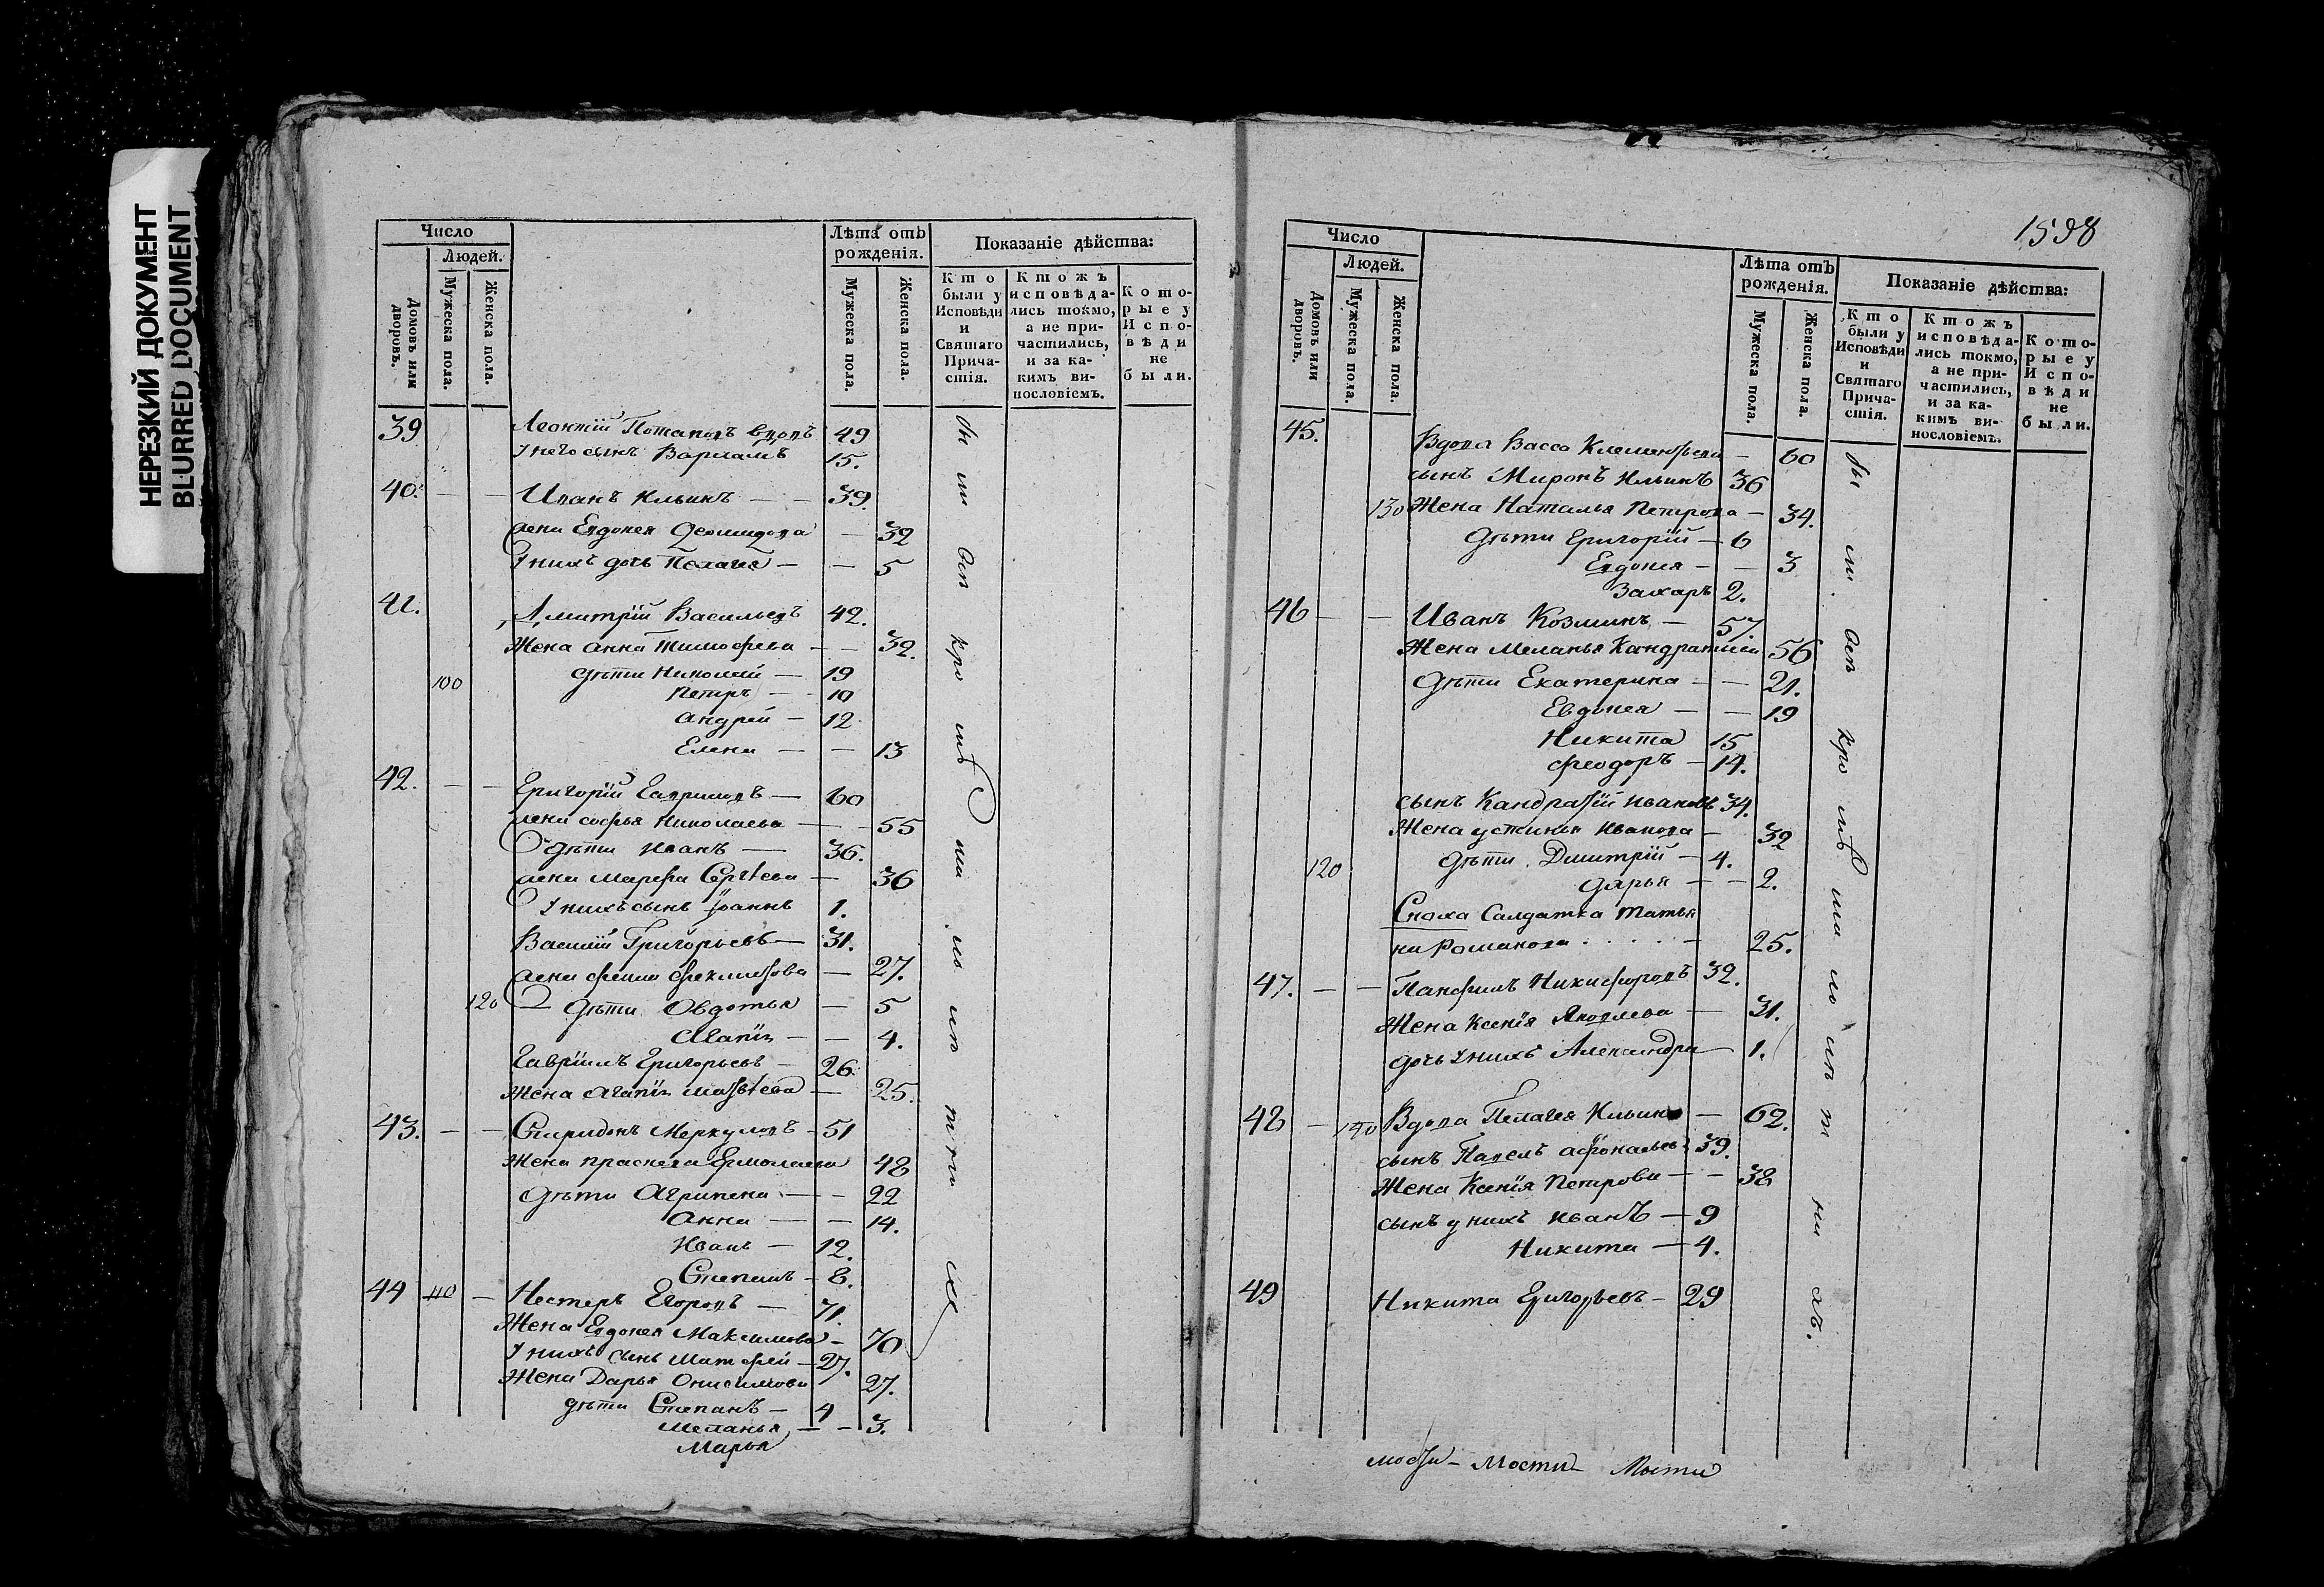 НЕРЕЗКИЙ ДОКУМЕНТ
BLURRED DOCUMENT
Число
Людей.
Домовъ или дворовъ.
Мужеска пола.
Женска пола.
Лѣта отъ рожденія.
Мужеска пола.
Женска пола.
Показаніе дѣйства:
Кто были у Исповѣди и Святаго Причастія.
Ктожъ исповѣдались токмо, а не причастились, и за какимъ винословіемъ.
Которые у Исповѣди не были.
39 Леонтій Потаповъ вдовъ 49
У него сынъ Варламъ 15.
40. — — Иванъ Ильинъ — — 39.
жена Евдокея — 32
У нихъ дочь Пелагея — — 5
41. Дмитрій Васильевъ 42.
Жена Анна Тимофеева — — 32.
100 дѣти Николай — 19
Петръ — 10
Андрей — 12
Елена — — 13
42. — — Григорій Гавриловъ — 60
жена софья Николаева — — 55
дѣти Иванъ — 36.
жена Марфа Сергѣева — 36
У нихъ сынъ Іоаннъ 1.
Василій Григорьевъ — 31.
жена — 27.
120 дѣти Овдотья — 5
Агапія — — 4.
Гавріилъ Григорьевъ — 26.
Жена Агапія Матвѣева — 25.
43. — — Спиридонъ Меркуловъ — 51
Жена Ермолаева 48
дѣти Агрипена — — 22
Анна — — 14.
Иванъ — 12.
Степанъ — 8.
44 110 — Нестеръ Егоровъ — 71.
Жена Евдокея Максимова — 70
У нихъ сынъ Матфей — 27.
Жена Дарья Онисимова 27.
дѣти Степанъ — 4
Меланья — — 3.
Марья
1598
Число
Людей.
Домовъ или дворовъ.
Мужеска пола.
Женска пола.
Лѣта отъ рожденія.
Мужеска пола.
Женска пола.
Показаніе дѣйства:
Кто были у Исповѣди и Святаго Причастія.
Ктожъ исповѣдались токмо, а не причастились, и за какимъ винословіемъ.
Которые у Исповѣди не были.
45. Вдова Васса — 60
сынъ Миронъ Ильинъ 36
130 Жена Наталья Петрова — 34.
дѣти Григорій — 6
Евдокея — — 3
Захаръ 2.
46 — — Иванъ Козминъ — 57.
Жена Меланья 56
дѣти Екатерина — — 21.
Евдокея — — 19
Никита 15
Феодоръ — 14.
сынъ Кандратій Ивановъ 34.
Жена устинья Иванова — 32
120 дѣти Дмитрій — 4.
дарья — — 2.
Сноха Салдатка Татья
на Романова — 25.
47. — — Панфилъ Никифоровъ 32.
Жена Ксенія Яковлева — 31.
дочь У нихъ Александра — 1.
48 — 140 Вдова Пелагея Ильина — 62.
сынъ Павелъ 39.
Жена Ксенія Петрова — — 38
сынъ у нихъ иванъ — 9
Никита — 4.
49 Никита Григорьевъ — 29
Мости